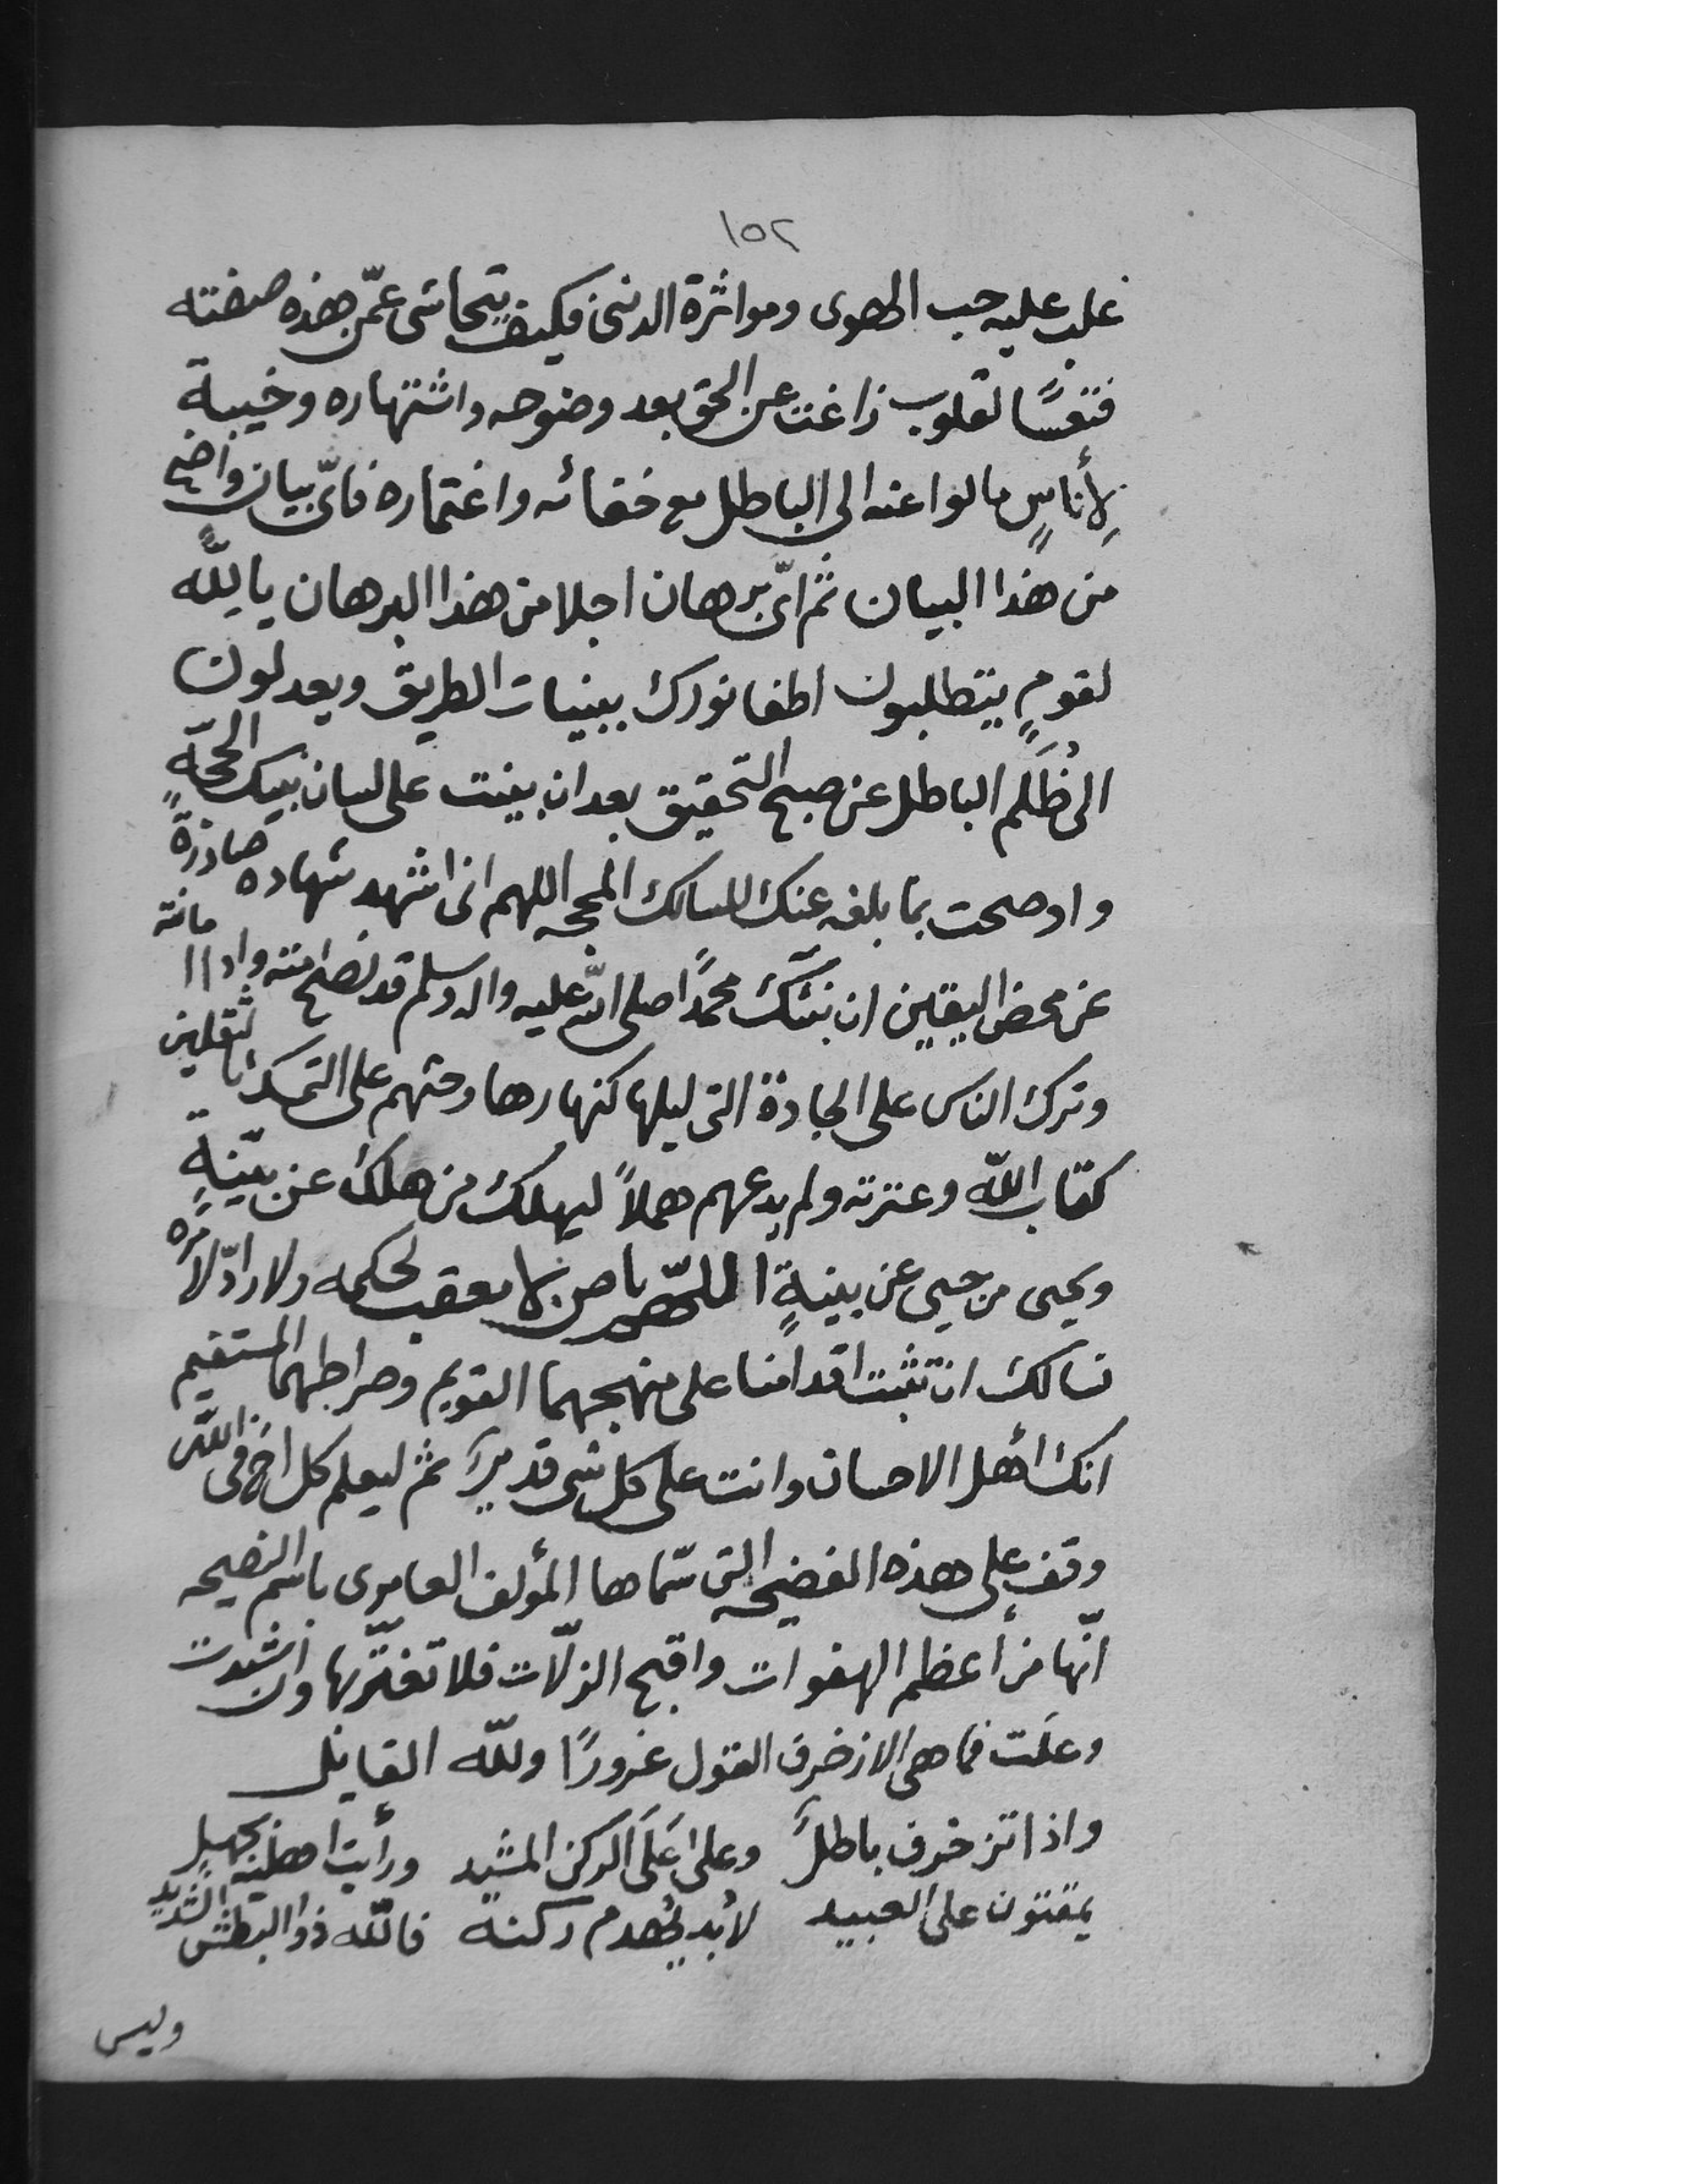 ١٥٢
غلب عليه حب الهوى ومواثرة الدنى فكيف يتحاشى عمّن هذه صفته
فتعسًا لقلوب زاغت عن الحق بعد وضوحه واشتهاره وخيبة
لِأناسٍ مالوا عنه الى الباطل مع خفائه واغتماره فاىّ بيان واضح
من هذا البيان ثم اىّ برهان اجلا من هذا البرهان يا لِلّه
لقومٍ يتطلبون اطفا نورك ببنيات الطريق ويعدلون
الى ظُلَم الباطل عن صبح التحقيق بعد ان بينت على لسان نبيك الحجّة
واوضحت بما بلغه عنك للسالك المحجه اللهم انى اشهد شهاده صادرةً
عن محض اليقين ان نبيّك محمدًا صلى الله عليه واله وسلم قد نصح امته وادا امانته
وترك الناس على الجادة التى ليلها كنهارها وحثهم على التمسك بالثقلين
كتاب اللّه وعترته ولم يدعهم هملاً ليهلك من هلك عن بيّنةٍ
ويحيى من حيى عن بينةٍ اللّهم يا من لا معقب لحكمه ولا رادّ لامره
نسالك ان تثبت اقدامنا على منهجهما القويم وصراطهما المستقيم
انك اهل الاحسان وانت على كل شى قدير ثم ليعلم كل اخ فى اللّه
وقف على هذه الفضيحه التى سمّاها المؤلف العامرى باسم النصيحه
انّها من أعظم الهفوات واقبح الزلّات فلا تغترّ بها وان شيدت
وعلَت فما هى الا زخرف القول غرورًا وللّه القايل
واذا تزخرف باطلٌ وعلى اعَلَى الركن المشيد ورأيت اهليه بجهلٍ
يمقتون على العبيد لابُد يُهدم ركنه فاللّه ذو البطش الشديد
وليس